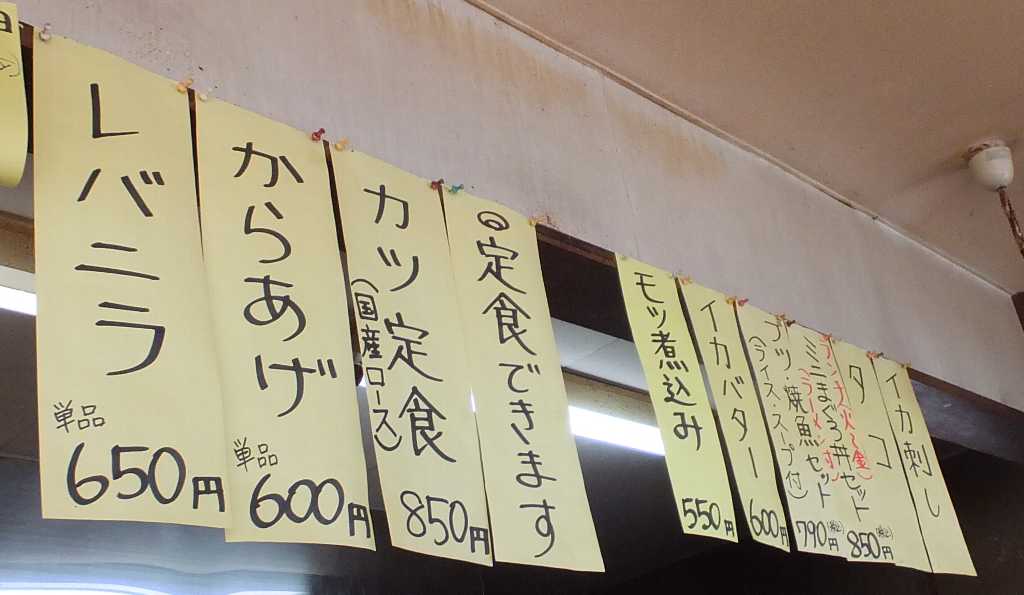 レバニラ
単品
650円
からあげ
単品
600円
カツ定食
(国産ロース)
850円
◎定食できます
モツ煮込み
550円
イカバター
600円
ブツ・焼魚セット
(ライス・スープ付)
790円(税込)
ミニまぐろ丼セット
850円(税込)
タコ
イカ刺し